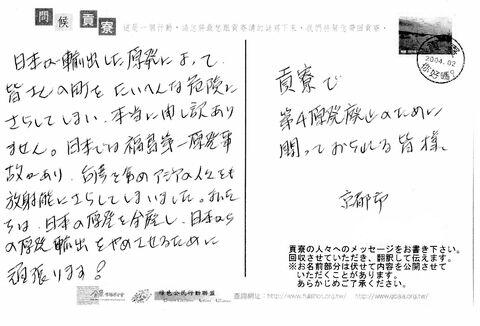 問候貢寮
日本が輸出した原発によって、
皆さんの町をたいへんな危険に
さらしてしまい、本当に申し訳あり
ません。日本では福島第一原発事
故があり、台湾を含めアジアの人々をも
放射能にさらしてしまいました。私た
ちは、日本の原発を全廃し、日本から
の原発輸出をやめさせるために
頑張ります!
2004.02
你好嗎?
貢寮で
第4原発廃止のために
闘っておられる皆様、
京都市
貢寮の人々へのメッセージをお書き下さい。
回収させていただき、翻訳して伝えます。
※お名前部分は伏せて内容を公開させて
いただくことがあります。
あらかじめご了承ください。
綠色公民行動聯盟
查詢網址:http://www.fulishor.org.tw/ http://www.gcaa.org.tw/